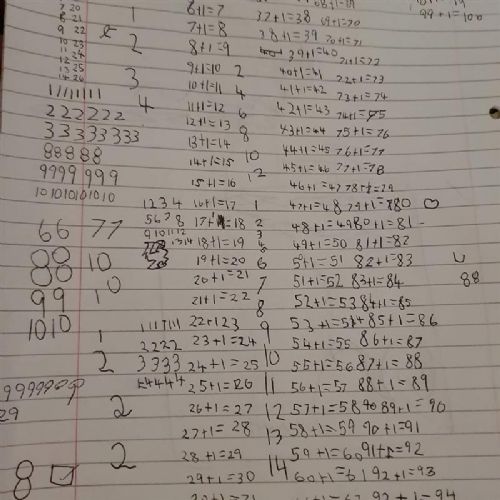 7 20
8 21
9 22
10 23
11 24
12 25
13 26
1
2
3
4
11111111
222222
33333333
88888
9999 999
101010101010
66 77
88 10
88 10
99
1010
1
2
2
2
9999999
29
8
1 2 3 4
5 6 7 8
9 10 11 12
13 14
1111 1111
2222
3333
4444
6+1=7
7+1=8
8+1=9
9+1=10
10+1=11
11+1=12
12+1=13
13+1=14
14+1=15
15+1=16
16+1=17
17+1=18
18+1=19
19+1=20
20+1=21
21+1=22
22+123
23+1=24
24+1=25
25+1=26
26+1=27
27+1=28
28+1=29
29+1=30
2
4
6
8
10
12
1
2
3
4
5
6
7
8
9
10
11
12
13
14
37+1=38
38+1=39
39+1=40
40+1=41
41+1=42
42+1=43
43+1=44
44+1=45
45+1=46
46+1=47
47+1=48
48+1=49
49+1=50
50+1=51
51+1=52
52+1=53
53+1=54
54+1=55
55+1=56
56+1=57
57+1=58
58+1=59
59+1=60
60+1=61
69+1=70
70+1=71
71+1=72
72+1=73
73+1=74
74+1=75
75+1=76
76+1=77
77+1=78
78+1=79
79+1=80
80+1=81
81+1=82
82+1=83
83+1=84
84+1=85
85+1=86
86+1=87
87+1=88
88+1=89
89+1=90
90+1=91
91+1=92
92+1=93
93+1=94
99+1=100
88